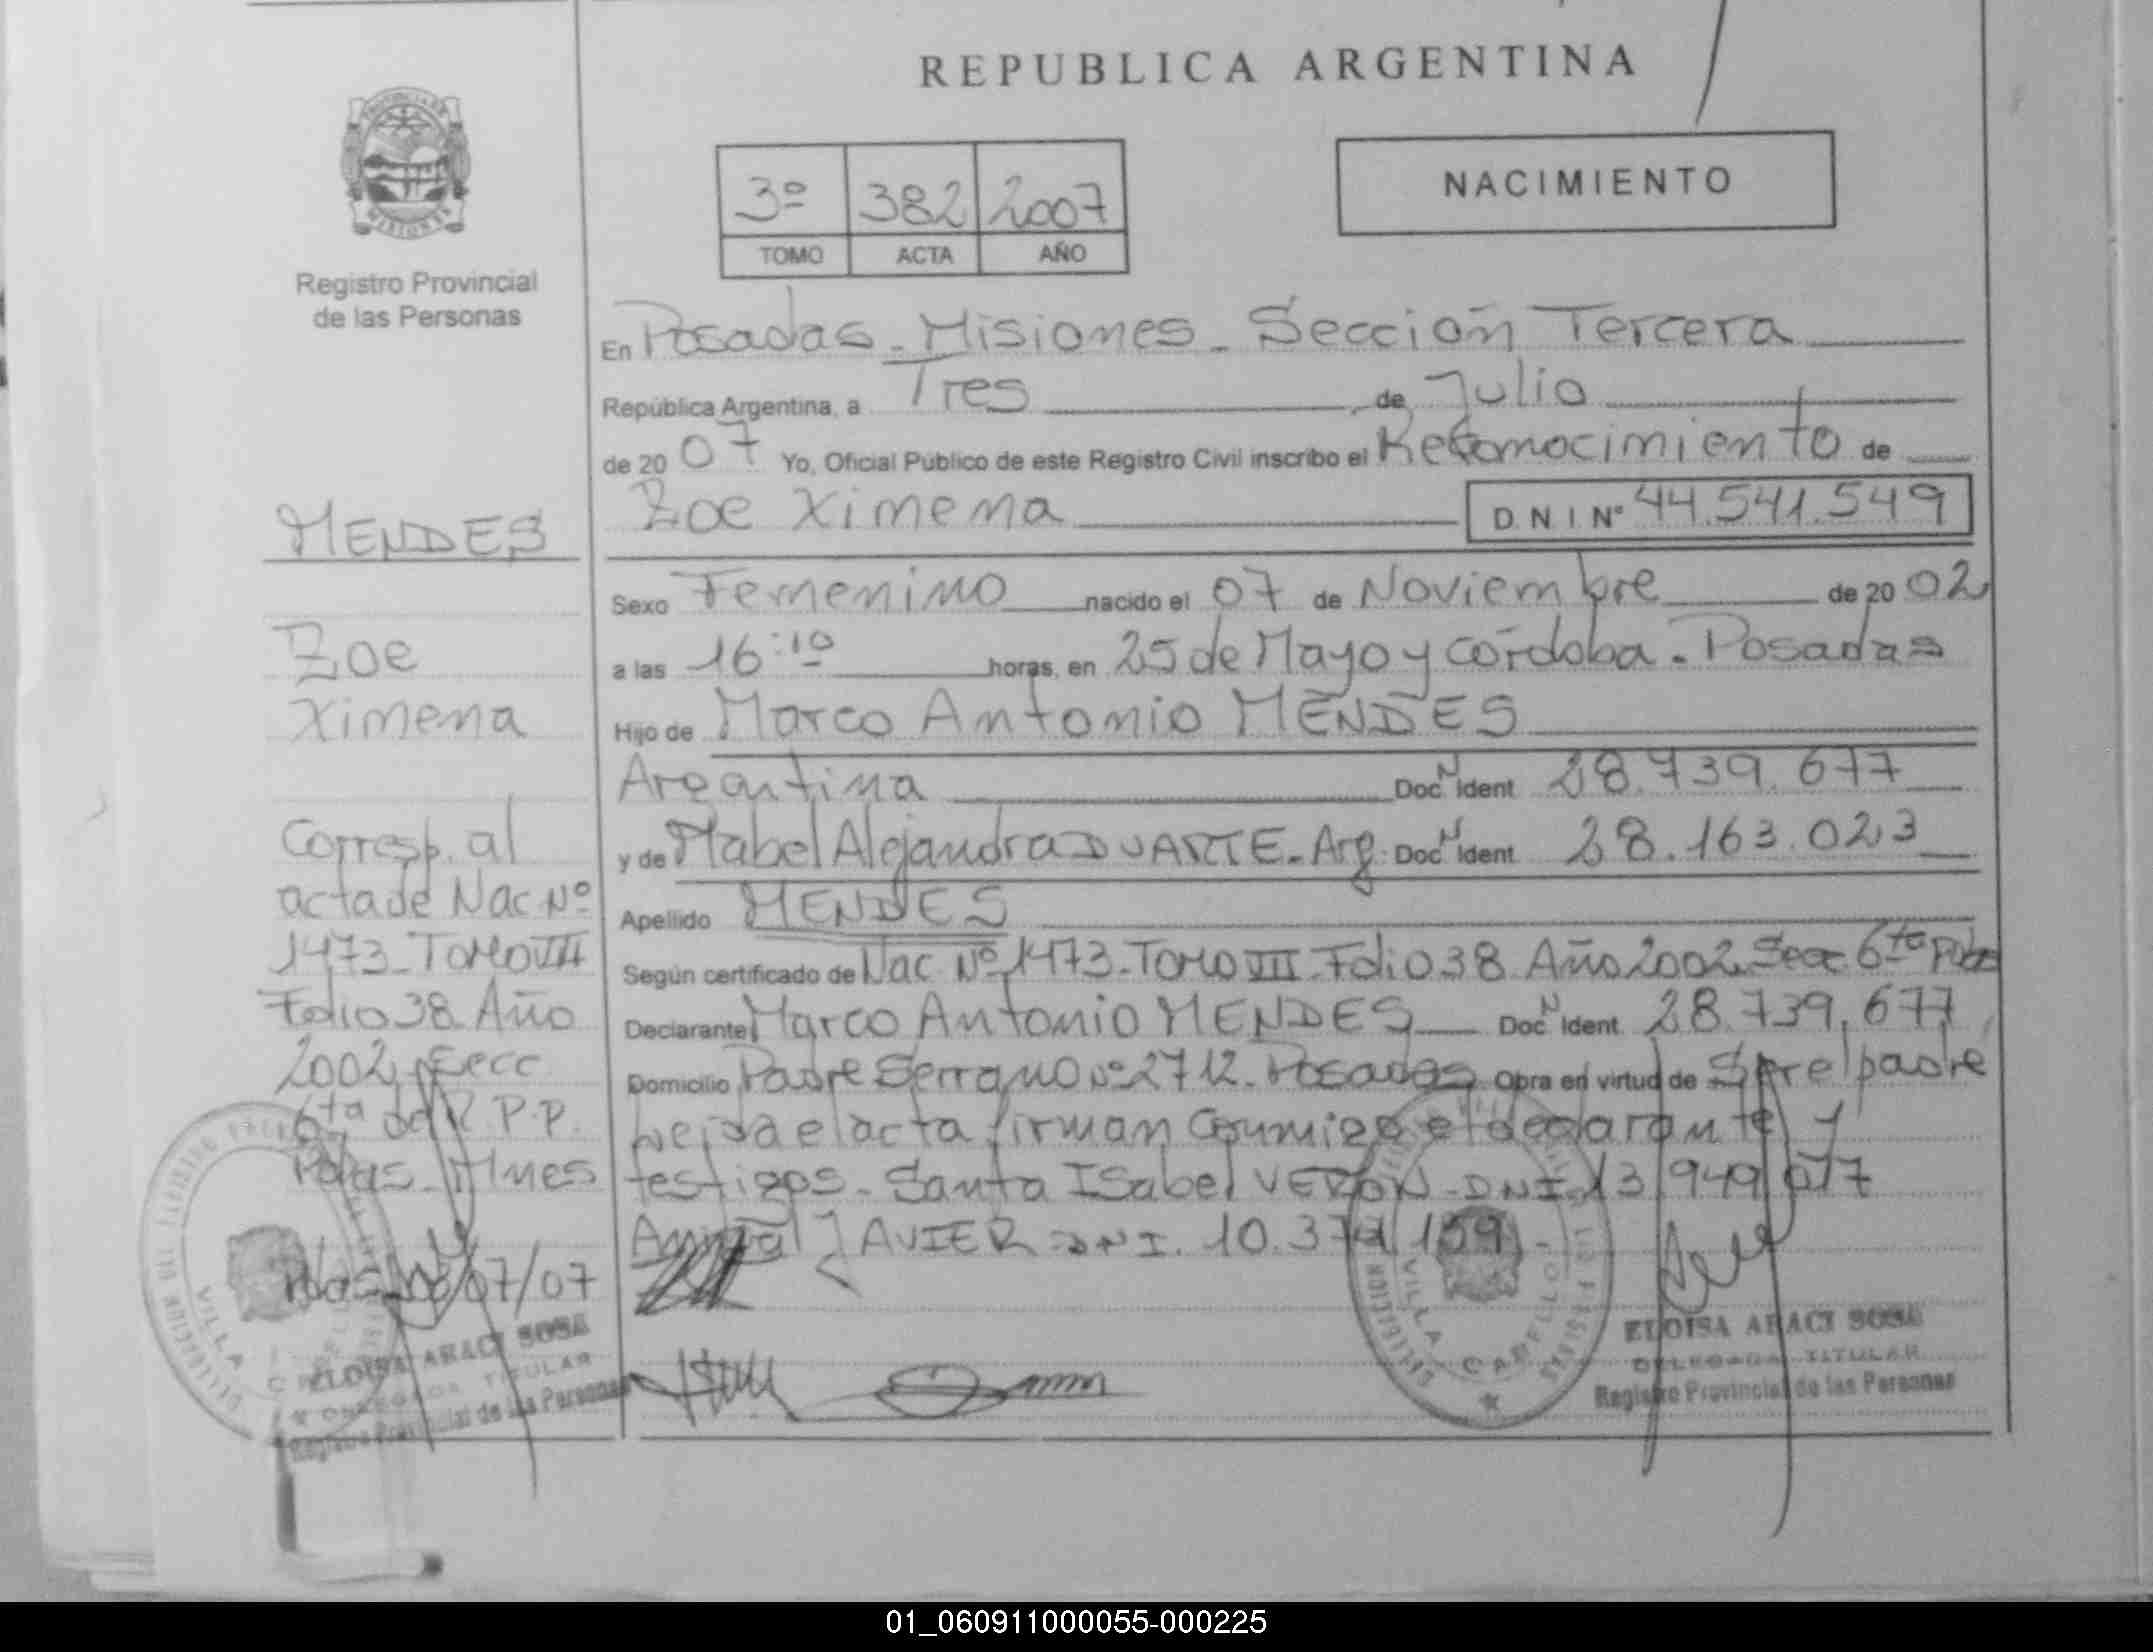 REPUBLICA ARGENTINA
3º 382 2007
TOMO ACTA AÑO
NACIMIENTO
Registro Provincial
de las Personas
MENDES
Zoe
Ximena
Corresp. al
acta de Nac Nº
1473 - TOMO VIII
Folio 38 Año
2002, Secc
6ta del R.P.P.
Pdas - Mnes
/07/07
ELOISA ARACI SOSA
DELEGADA TITULAR
Registro Provincial de las Personas
En Posadas - Misiones - Sección Tercera
República Argentina, a Tres de Julio
de 2007 Yo, Oficial Público de este Registro Civil inscribo el Reconocimiento de
Zoe Ximena D N I Nº 44.541.549
Sexo Femenino nacido el 07 de Noviembre de 2002
a las 16:10 horas, en 25 de Mayo y córdoba - Posadas
Hijo de Marco Antonio MENDES
Argentina Doc N Ident 28.739.677
y de Mabel Alejandra DUARTE - Arg. Doc N Ident 28.163.023
Apellido MENDES
Según certificado de Nac Nº 1473 - TOMO VIII Folio 38 Año 2002 Secc 6ta Pdas
Declarante Marco Antonio MENDES Doc N Ident 28.739.677
Domicilio Padre Serrano Nº 2712 - Posadas Obra en virtud de Ser el padre
Leída el acta firman conmigo el declarante y
testigos - Santa ISabel VERON - DNI 13 949 077
JAVIER - DNI. 10.37
VILLA CABELLO
ELOISA ARACI SOSA
DELEGADA TITULAR
Registro Provincial de las Personas
01_060911000055-000225